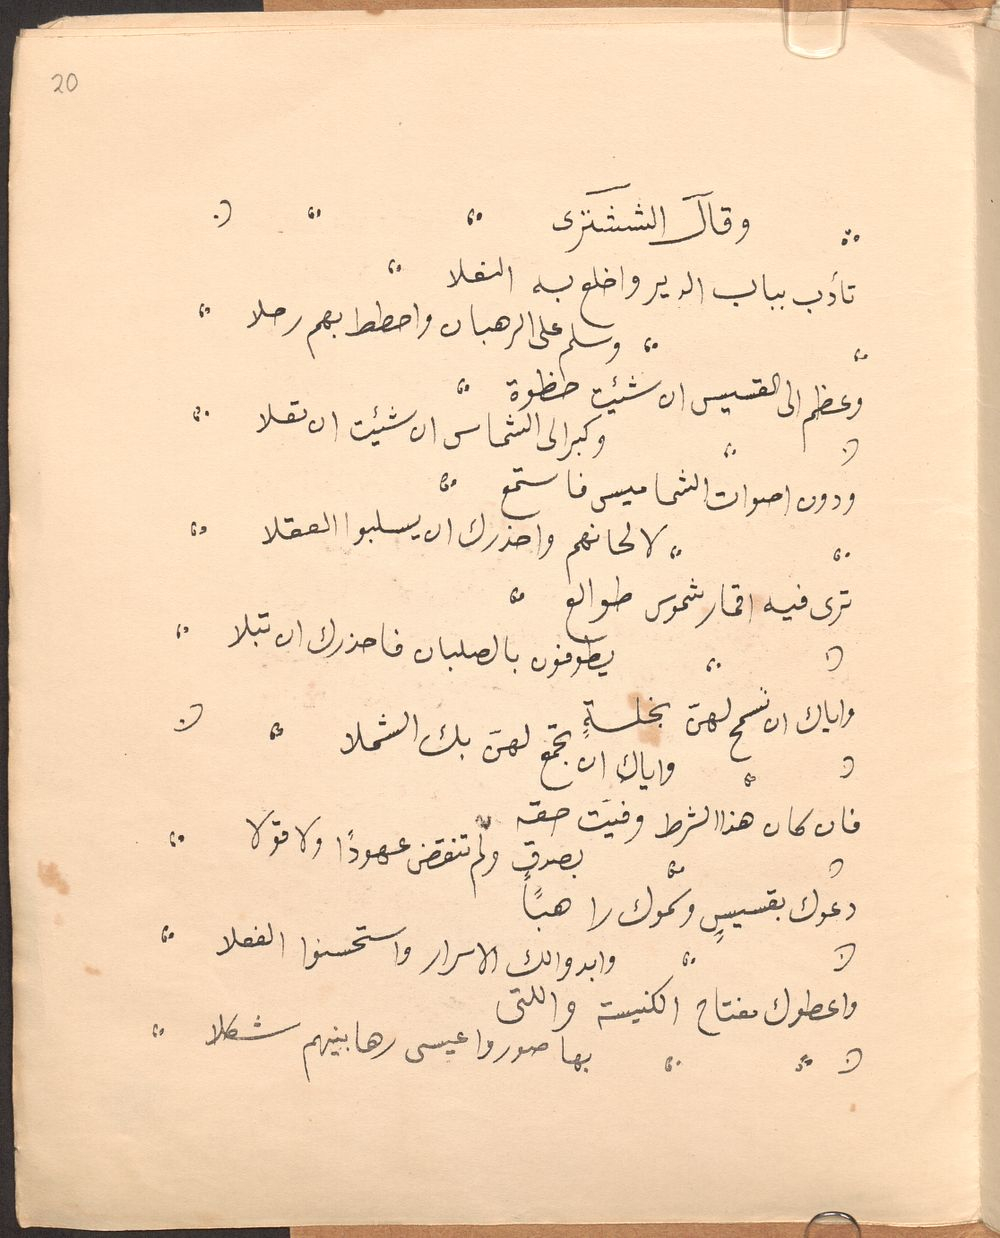 20
وقال الششترى
تأدب بباب الدير واخلع به النعلا
وسلم على الرهبان واحطط بهم رحلا
وعظم الى القسيس ان شئت حظوة
وكبر الى الشماس ان شئت ان تعلا
ودون اصوات الشماميس فاستمع
لالحانهم واحذرك ان يسلبوا العقلا
ترى فيه اقمار شموس طوالع
يطوفون بالصلبان فاحذرك ان تبلا
واياك ان تسمح لهنّ بخلسةٍ
واياك ان تجمع لهنّ بك الشملا
فان كان هذا الشرط وفيَت حقه
بصدقٍ ولم تنقض عهودًا ولا قولا
دعوك بقسيسٍ وسموك راهبًا
وابدوا لك الاسرار واستحسنوا الفعلا
واعطوك مفتاح الكنيسة واللتى
بها صوروا عيسى رهابينهم شكلا